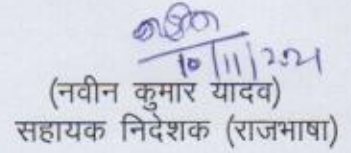 10/11/2021
(नवीन कुमार यादव)
सहायक निदेशक (राजभाषा)